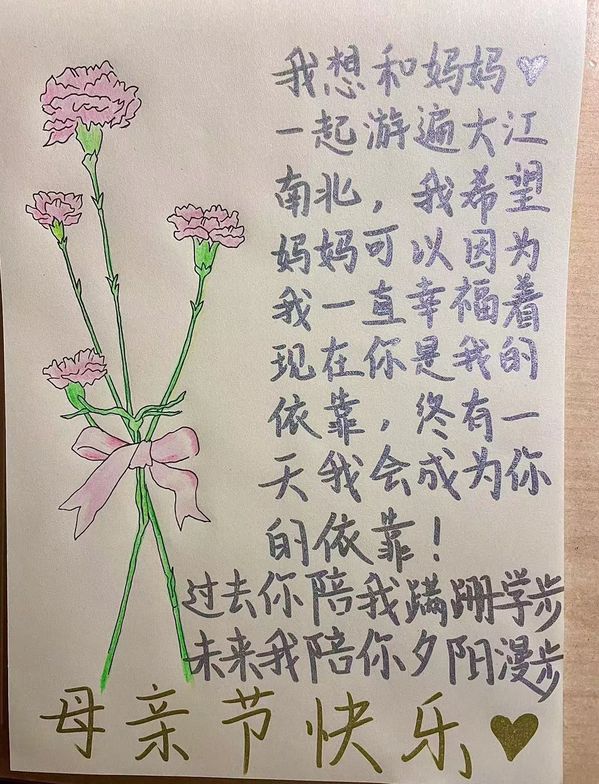 我想和妈妈♥
一起游遍大江
南北，我希望
妈妈可以因为
我一直幸福着
现在你是我的
依靠，终有一
天我会成为你
的依靠！
过去你陪我蹒跚学步
未来我陪你夕阳漫步
母亲节快乐♥